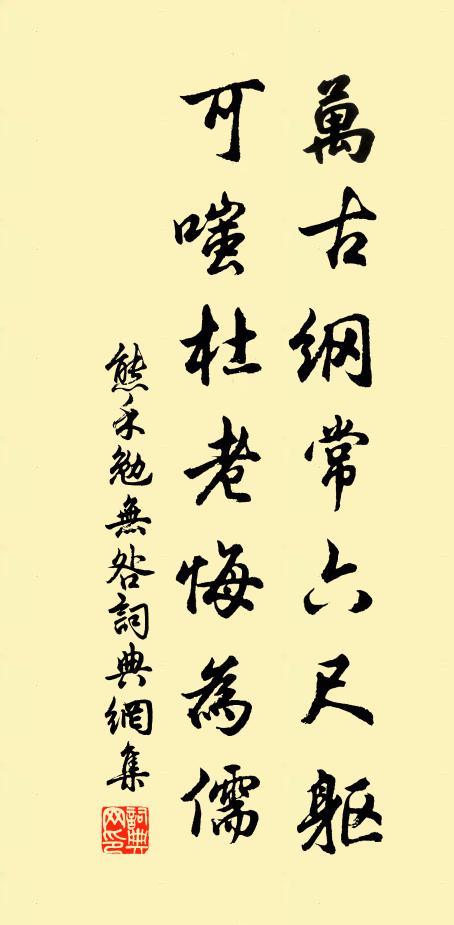 萬古綱常六尺軀
可嗤杜老悔為儒
熊禾勉無咎詞典網集
詞典網印